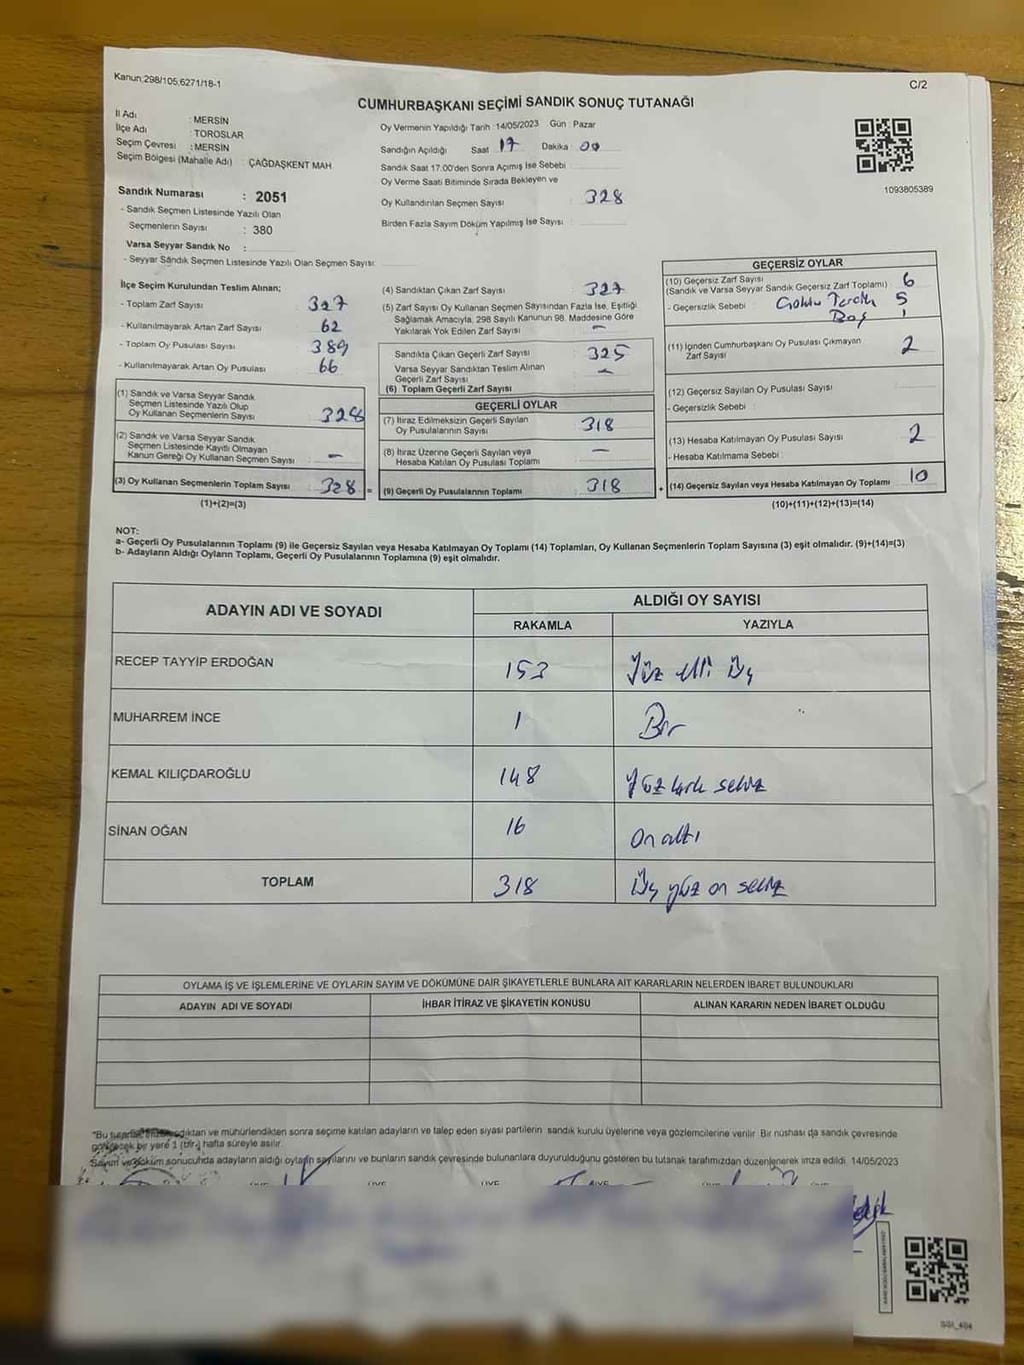 Kanun,298/105,6271/18-1
C/2
CUMHURBAŞKANI SEÇİMİ SANDIK SONUÇ TUTANAĞI
İl Adı : MERSİN
İlçe Adı : TOROSLAR
Seçim Çevresi : MERSİN
Seçim Bölgesi (Mahalle Adı) : ÇAĞDAŞKENT MAH.
Sandık Numarası : 2051
- Sandık Seçmen Listesinde Yazılı Olan
Seçmenlerin Sayısı : 380
Varsa Seyyar Sandık No :
- Seyyar Sandık Seçmen Listesinde Yazılı Olan Seçmen Sayısı:
Oy Vermenin Yapıldığı Tarih : 14/05/2023 Gün : Pazar
Sandığın Açıldığı Saat 17 Dakika 00
Sandık Saat 17.00'den Sonra Açımış İse Sebebi
Oy Verme Saati Bitiminde Sırada Bekleyen ve
Oy Kullandırılan Seçmen Sayısı 328
Birden Fazla Sayım Döküm Yapılmış İse Sayısı :
1093805389
İlçe Seçim Kurulundan Teslim Alınan;
- Toplam Zarf Sayısı 327
- Kullanılmayarak Artan Zarf Sayısı 62
- Toplam Oy Pusulası Sayısı 389
- Kullanılmayarak Artan Oy Pusulası 66
(1) Sandık ve Varsa Seyyar Sandık
Seçmen Listesinde Yazılı Olup
Oy Kullanan Seçmenlerin Sayısı 328
(2) Sandık ve Varsa Seyyar Sandık
Seçmen Listesinde Kayıtlı Olmayan
Kanun Gereği Oy Kullanan Seçmen Sayısı –
(3) Oy Kullanan Seçmenlerin Toplam Sayısı 328 =
(1)+(2)=(3)
(4) Sandıktan Çıkan Zarf Sayısı 327
(5) Zarf Sayısı Oy Kullanan Seçmen Sayısından Fazla İse, Eşitliği
Sağlamak Amacıyla, 298 Sayılı Kanunun 98. Maddesine Göre
Yakılarak Yok Edilen Zarf Sayısı –
Sandıkta Çıkan Geçerli Zarf Sayısı 325
Varsa Seyyar Sandıktan Teslim Alınan
Geçerli Zarf Sayısı –
(6) Toplam Geçerli Zarf Sayısı
GEÇERLİ OYLAR
(7) İtiraz Edilmeksizin Geçerli Sayılan
Oy Pusulalarının Sayısı 318
(8) İtiraz Üzerine Geçerli Sayılan veya
Hesaba Katılan Oy Pusulası Toplamı –
(9) Geçerli Oy Pusulalarının Toplamı 318 +
GEÇERSİZ OYLAR
(10) Geçersiz Zarf Sayısı 6
(Sandık ve Varsa Seyyar Sandık Geçersiz Zarf Toplamı)
- Geçersizlik Sebebi : Çoklu Tercih 5
Boş 1
(11) İçinden Cumhurbaşkanı Oy Pusulası Çıkmayan
Zarf Sayısı 2
(12) Geçersiz Sayılan Oy Pusulası Sayısı
- Geçersizlik Sebebi :
(13) Hesaba Katılmayan Oy Pusulası Sayısı 2
- Hesaba Katılmama Sebebi :
(14) Geçersiz Sayılan veya Hesaba Katılmayan Oy Toplamı 10
(10)+(11)+(12)+(13)=(14)
NOT:
a- Geçerli Oy Pusulalarının Toplamı (9) ile Geçersiz Sayılan veya Hesaba Katılmayan Oy Toplamı (14) Toplamları, Oy Kullanan Seçmenlerin Toplam Sayısına (3) eşit olmalıdır. (9)+(14)=(3)
b- Adayların Aldığı Oyların Toplamı, Geçerli Oy Pusulalarının Toplamına (9) eşit olmalıdır.
ADAYIN ADI VE SOYADI
ALDIĞI OY SAYISI
RAKAMLA YAZIYLA
RECEP TAYYİP ERDOĞAN 153 Yüz elli üç
MUHARREM İNCE 1 Bir
KEMAL KILIÇDAROĞLU 148 yüz kırk sekiz
SİNAN OĞAN 16 On altı
TOPLAM 318 Üç yüz on sekiz
OYLAMA İŞ VE İŞLEMLERİNE VE OYLARIN SAYIM VE DÖKÜMÜNE DAİR ŞİKAYETLERLE BUNLARA AİT KARARLARIN NELERDEN İBARET BULUNDUKLARI
ADAYIN ADI VE SOYADI İHBAR İTİRAZ VE ŞİKAYETİN KONUSU ALINAN KARARIN NEDEN İBARET OLDUĞU
*Bu ve mühürlendikten sonra seçime katılan adayların ve talep eden siyasi partilerin sandık kurulu üyelerine veya gözlemcilerine verilir. Bir nüshası da sandık çevresinde
bir yere 1 (bir) hafta süreyle asılır.
Sayım ve döküm sonucunda adayların aldığı oyların sayılarını ve bunların sandık çevresinde bulunanlara duyurulduğunu gösteren bu tutanak tarafımızdan düzenlenerek imza edildi. 14/05/2023